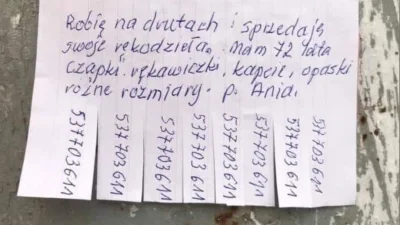 Robię na drutach i sprzedaję
swoje rękodzieła. Mam 72 lata
czapki, rękawiczki, kapcie, opaski
różne rozmiary. p. Ania.
537703611
537703611
537703611
537703611
537703611
537703611
537703611
537703611